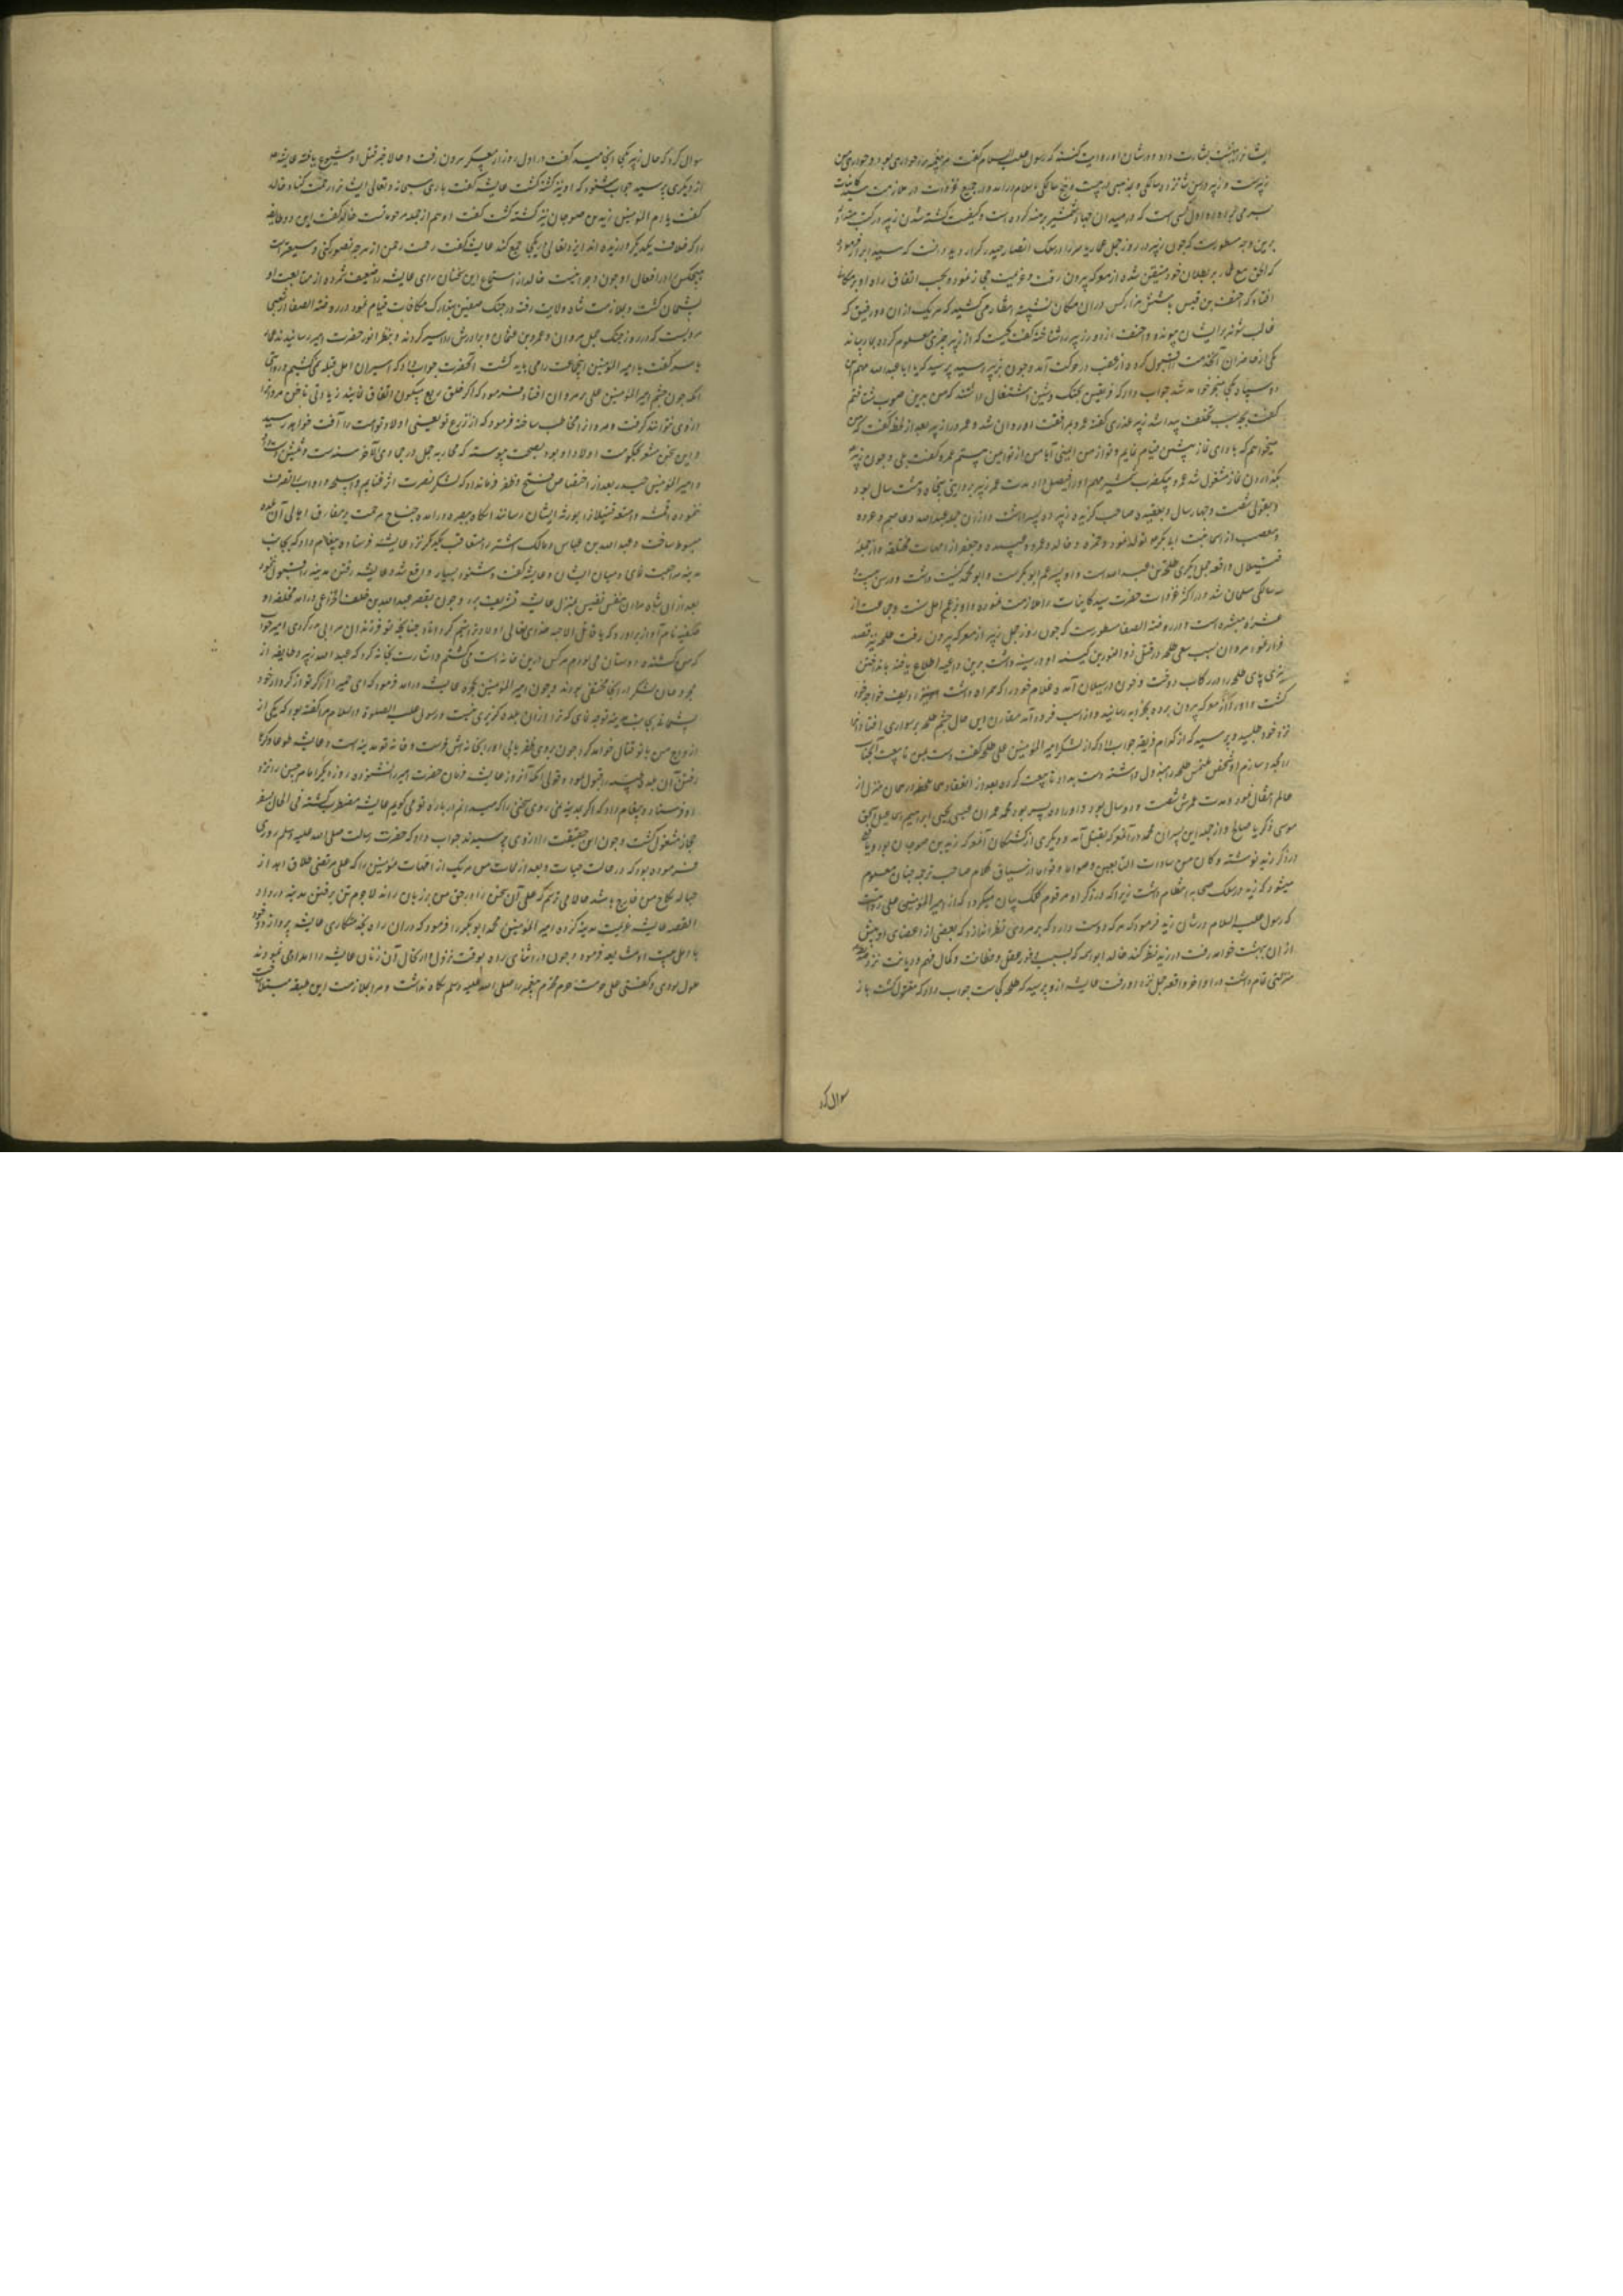 ایشانرا بهشت بشارت داد و در شان او روایت کنند که رسول علیه السلام گفت هر پیغمبر را حواری بود و حواری من
زبیرست و زبیر در سن شانزده سالگی و بمذهبی در بیست و پنج سالگی باسلام درآمد و در جمیع غزوات در ملازمت سید کاینات
بسر می برد و او اول کسی است که در میدان جهاد شمشیر برهنه کرده است و کیفیت کشته شدن زبیر در کتب
برین وجه مسطورست که چون زبیر در روز جمل عمار یاسر را در سلک انصار حیدر کرار دید و دانست که سید ابرار فرموده
که الحق مع عمار بر بطلان خود متیقن شده از معرکه بیرون رفت و عزیمت حجاز نمود و بحسب اتفاق راه او بر مکانی
افتاد که احنف بن قیس با شش هزار کس در آن مکان نشسته انتظار می کشید که هر یک از آن دو فریق که
غالب شوند بدیشان پیوندد و احنف از دور زبیر را شناخته گفت کیست که از زبیر خبری معلوم کرده بما رساند
یکی از حاضران آنخدمت قبول کرده از عقب در حرکت آمد و چون بزبیر رسید پرسید که یا ابا عبدالله مهم این
دو سپاه بکجا منجر خواهد شد جواب داد که فریقین بجنگ و شین اشتغال داشتند که من بدین صوب شتافتم
گفت بچه سبب تخلف پیدا شد زبیر عذری گفته عمرو بمرافقت او روان شد و عمرو را زبیر بعد از لحظه گفت که من
میخواهم که بادای نماز پیشین قیام نمایم و تو از من ایمنی آیا من از تو ایمن هستم عمرو گفت بلی و چون زبیر
بگذاردن نماز مشغول شد عمرو بیک ضرب شمشیر مهم او را فیصل داد مدت عمر زبیر بروایتی پنجاه و هشت سال بود
و بقولی شصت و چهار سال و بعقیده صاحب گزیده زبیر ده پسر داشت و از آن جمله عبدالله و عاصم و عروه
و مصعب از اسما بنت ابابکر متولد نمود و حمزه و خالد و عمرو و عبیده و جعفر از امهات مختلفه و از جمله
قتیلان واقعه جمل دیگری طلحه بن عبیدالله است و او پسر عم ابوبکرست و ابو محمد کنیت داشت و در سن بیست
سه سالگی مسلمان شد و در اکثر غزوات حضرت سید کاینات را ملازمت نمود و او بزعم اهل سنت و جماعت از
عشره مبشره است و در روضة الصفا مسطورست که چون روز جمل زبیر از معرکه بیرون رفت طلحه نیز قصد
فرار نمود مروان بسبب سعی طلحه در قتل ذو النورین کینه او در سینه داشت برین داعیه اطلاع یافته بانداختن
تیری پای طلحه را در رکاب دوخت و خون در سیلان آمده غلام خود را که همراه داشت ردیف خواجه خود
گشت و او را از معرکه بیرون برده بخرابه رسانید و از اسب فرود آمد مقارن این حال چشم طلحه بر سواری افتاد و او را
نزد خود طلبید و پرسید که از کدام فریقی جواب داد که از لشکر امیرالمؤمنین علی طلحه گفت دست پیش تا بیعت آنجناب
را مجدد سازم آن شخص ملتمس طلحه را مبذول داشته دست بداد تا بیعت کرده بعد از انعقاد بیعت همان لحظه در همان منزل از
عالم انتقال نمود مدت عمرش شصت و دو سال بود و او را ده پسر بود محمد عمران عیسی یحیی ابراهیم اسماعیل اسحق
موسی زکریا صالح و از جمله این پسران محمد در آن معرکه بقتل آمد و دیگری از کشتگان آن معرکه زید بن صوحان بود و
در ذکر زید نوشته و کان من سادات التابعین و صواما و قواما از سیاق کلام صاحب ترجمه چنان معلوم
میشود که زید در سلک صحابه انتظام داشت زیرا که در ذکر او مرقوم کلک بیان میگردد که از امیرالمؤمنین علی روایتست
که رسول علیه السلام در شان زید فرمود که هر که دوست دارد که بر مردی نظر اندازد که بعضی از اعضای او پیش
از آن ببهشت خواهد رفت در زید نظر کند خالد ابو اسمه که بسبب وفور عقل و فطانت و کمال فهم و دیانت نزد
منزلتی تمام داشت در اواخر واقعه جمل نزد او رفت عایشه از و پرسید که طلحه کجاست جواب داد که مقتول گشت باز
سوال کرد
سوال کرد که حال زبیر بکجا انجامید گفت در اول روز از معسکر بیرون رفت و حالا خبر قتل او شیوع یافته عایشه
از دیگری پرسید جواب شنود که او نیز کشته گشت عایشه گفت باری سبحانه و تعالی ایشانرا رحمت کناد خالد
گفت یا ام المؤمنین زید بن صوحان نیز کشته گشت گفت او هم از جمله مرحومانست خالد گفت این دو طایفه
را که خلاف یکدیگر ورزیده اند ایزد تعالی در یکجا جمع کند عایشه گفت رحمت رحمن از هر چه تصور کنی وسیعترست
هیچکس را در افعال او چون و چرا نیست خالد از استماع این سخنان رای عایشه را ضعیف شمرده از متابعت او
پشیمان گشت و بملازمت شاه ولایت رفته در جنگ صفین بتدارک مکافات قیام نمود در روضة الصفا از شعبی
مرویست که در روز جنگ جمل مروان و عمرو بن عثمان و برادرش را اسیر کردند و بنظر انور حضرت امیر رسانیدند عمار
یاسر گفت یا امیر المؤمنین اینجماعت را می باید کشت آنحضرت جواب داد که اسیران اهل قبله نمی کشیم و روایتی
آنکه چون چشم امیر المؤمنین علی بر مروان افتاد فرمود که اگر خلق ربع مسکون اتفاق نمایند زیادتی ناخن مرو را
از وی نتوانند گرفت و مرو را مخاطب ساخته فرمود که از زرع تو یعنی اولاد تو امت را آفت خواهد رسید
و این سخن مشعر بحکومت اولاد او بود بصحت پیوسته که محاربه جمل در جمادی الآخر سنه ست و ثلثین است
و امیر المؤمنین حیدر بعد از اختصاص فتح و ظفر فرمانداد که لشکر نصرت اثر غنایم و اسلحه و دواب را تصرف
نموده اقمشه و امتعه قتیلانرا بورثه ایشان رسانند آنگاه ببصره درآمده جناح مرحمت بر مفارق اهالی آن بلده
مبسوط ساخت و عبدالله بن عباس و مالک اشتر را متعاقب یکدیگر نزد عایشه فرستاده پیغام داد که بجانب
مدینه مراجعت نمای و میان ایشان و عایشه گفت و شنود بسیار واقع شد و عایشه رفتن مدینه را قبول ننمود
بعد از آن شاه مردان بنفس نفیس بمنزل عایشه تشریف برد و چون بقصر عبدالله بن خلف الخزاعی درآمد
صفیه نام آواز برآورد که یا قاتل الاحبه خدای تعالی اولاد ترا یتیم گرداناد چنانچه تو فرزندان مرا بی پدر کردی امیر جواب
که من کشنده دوستان می بودم هر کس درین خانه است می کشتم و اشارت بخانه کرد که عبدالله زبیر و طایفه از
مجروحان لشکر در آنجا مخفی بودند و چون امیر المؤمنین بحجره عایشه درآمد فرمود که ای حمیرا اگر تو از کردار خود
پشیمانی بجانب مدینه توجه نمای که ترا از آن بلده گزیری نیست و رسول علیه الصلوة و السلام مرا گفته بود که یکی از
ازواج من با تو قتال خواهد کرد چون بروی ظفر یابی او را بخانه اش فرست و خانه تو مدینه است و عایشه طوعا و کرها
رفتن آن بلده را قبول نمود و قولی آنکه آنروز عایشه فرمان حضرت امیر را نشنوده روز دیگر امام حسن را نزد
او فرستاد و پیغام داد که اگر بمدینه نمی روی سخنی را که میدانم در باره تو می گویم عایشه مضطرب گشته فی الحال بسفر
حجاز مشغول گشت و چون این حقیقت را از وی پرسیدند جواب داد که حضرت رسالت صلی الله علیه وسلم روزی
فرموده بود که در حالت حیات و بعد از ممات من هر یک از امهات مؤمنین را که علی مرتضی طلاق دهد از
حباله نکاح من خارج باشد حالا می ترسم که علی آن سخن را در حق من بر زبان راند لاجرم تن برفتن مدینه در داد
القصه عایشه عزیمت مدینه کرده امیر المؤمنین محمد ابوبکر را فرمود که در آن راه بخدمتکاری عایشه پردازد و خود
با اهل بیت او مشایعه فرمود و چون در اثنای راه بوقت نزول و ارتحال آن زنان عایشه را امداد می نمودند
ملول بودی و گفتی علی حرمت حرم محترم پیغمبر را صلی الله علیه وسلم نگاه نداشت و مرا بملازمت این طبقه مبتلا ساخت